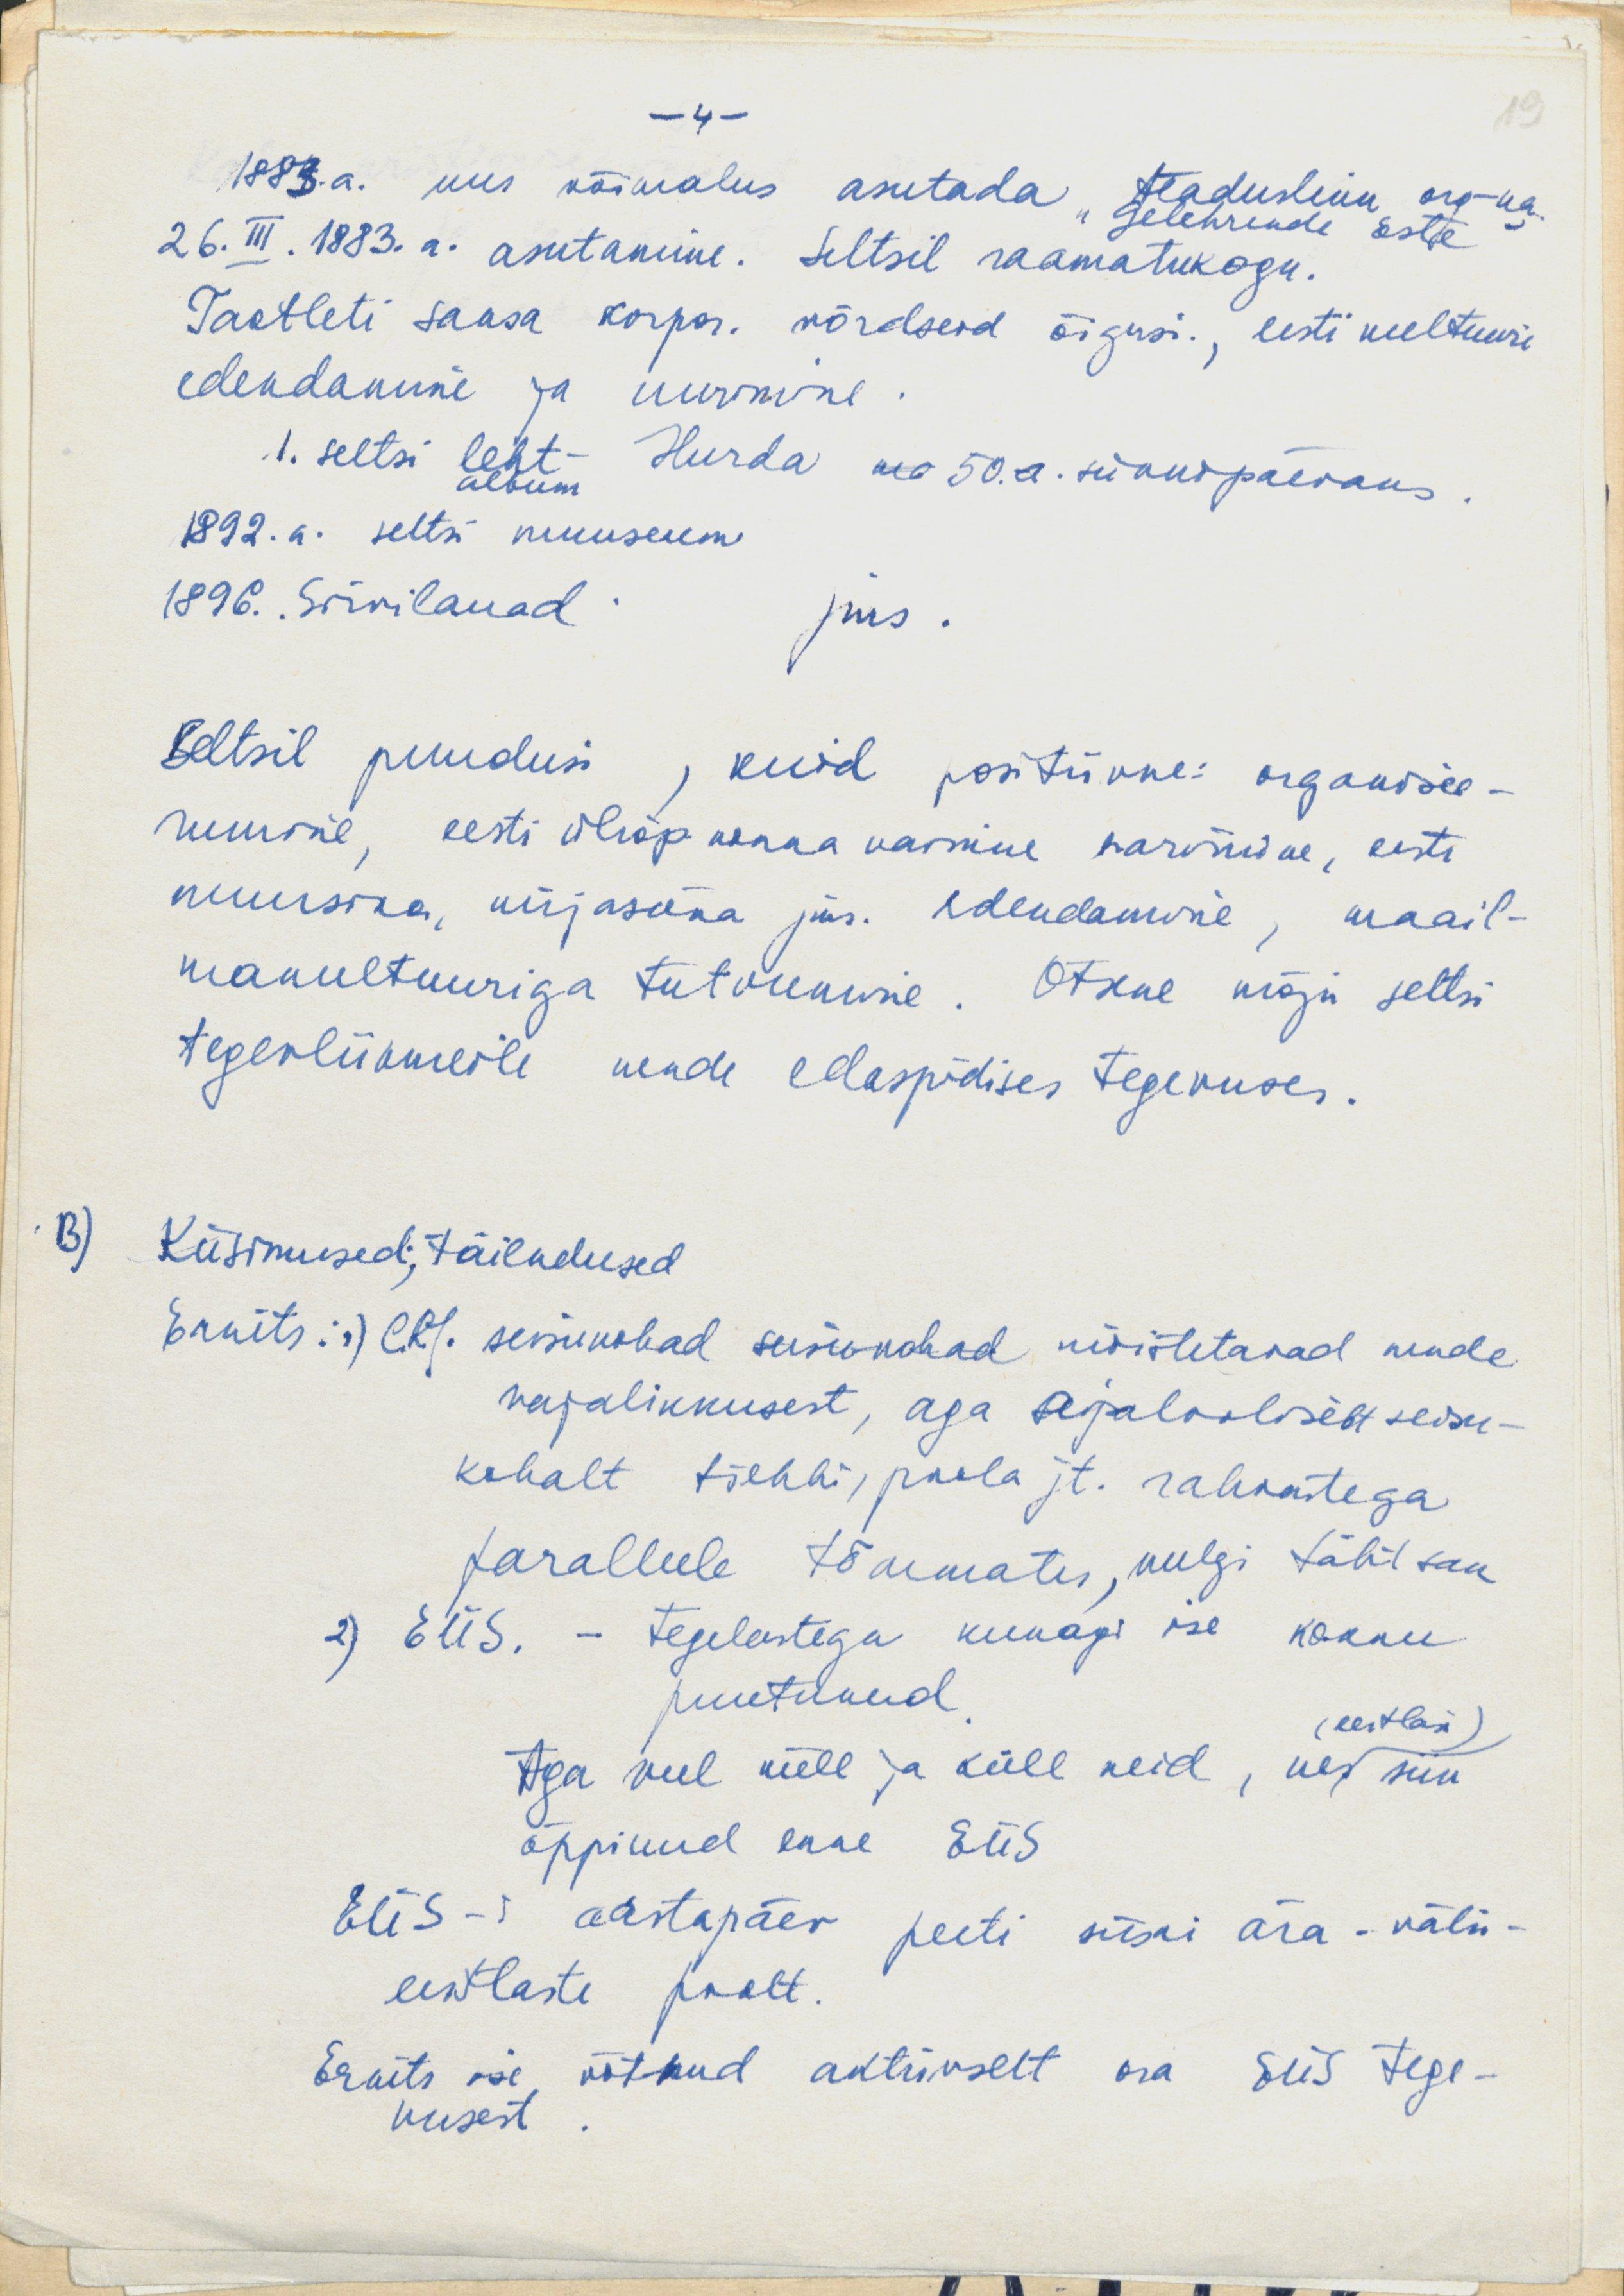 —4—
19
1883.a. uus võimalus asutada teadusliku org-na.
„Gelehrende Este"
26.III.1883.a. asutamine. Seltsil raamatukogu.
Taotleti saksa korpor. võrdseid õigusi., eesti kultuuri
edendamine ja uurimine.
1. seltsi leht-
album Hurda 50.a. sünnipäevaks.
1892.a. seltsi muuseum
1896. Sirvilauad. jms.
Seltsil puudusi, kuid positiivne: organisee-
rumine, eesti üliõp konna vaimine harimine, eesti
muusika, kirjasõna jms. edendamine, maail-
makultuuriga tutvumine. Otsene mõju seltsi
tegevliikmeile nende edaspidises tegevuses.
B) Küsimused; täiendused
Ernits: 1) CRJ. seisukohad seisukohad mõistetavad nende
vajalikkusest, aga ajalooliselt seisu-
kohalt tšehhi, poola jt. rahvastega
paralleele tõmmates, kulgi tähtsam
2) EÜS. - tegelastega kunagi ise kokku
puutunud.
Aga veel küll ja küll neid, kes (eestlasi) siin
õppinud enne EÜS
EÜS-i aastapäev peeti siiski ära - välis-
eestlaste poolt.
Ernits ise võtnud aktiivselt osa EÜS tege-
vusest.